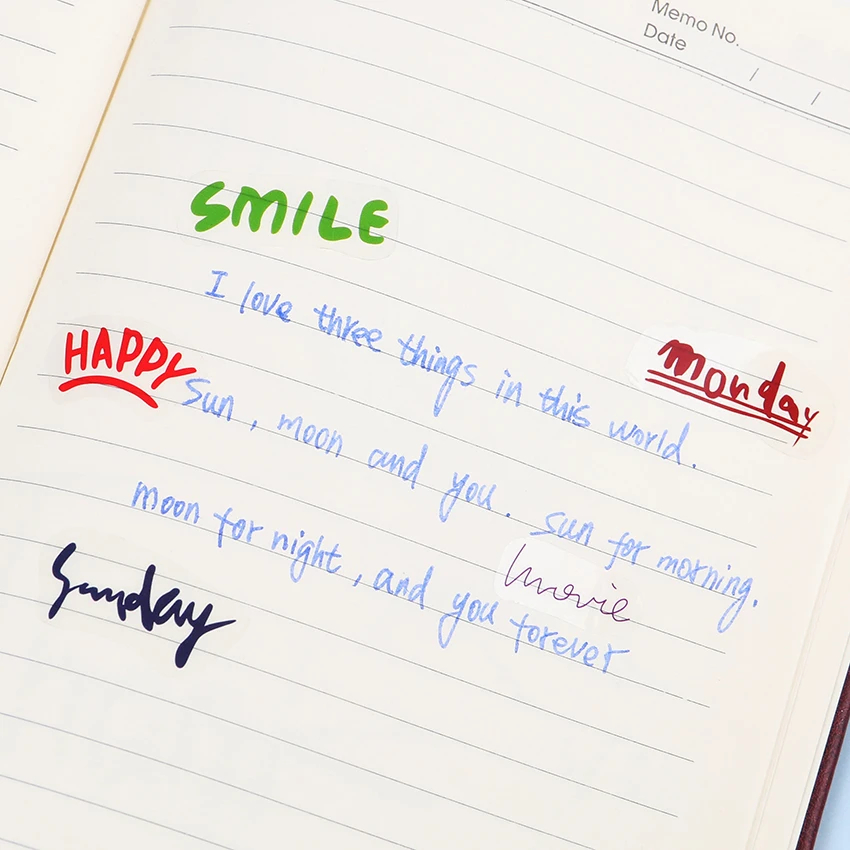 Memo No.
Date / /
SMILE
I love three things in this world.
monday
HAPPY
Sun, moon and you. Sun for morning.
moon for night, and you forever
movie
Sunday